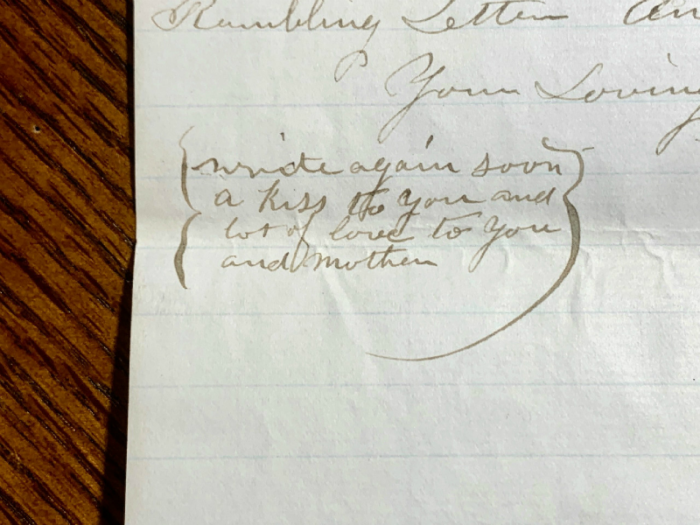 Rambling Letter An
Your Loving
write again soon
a kiss to you and
lot of love to you
and mother